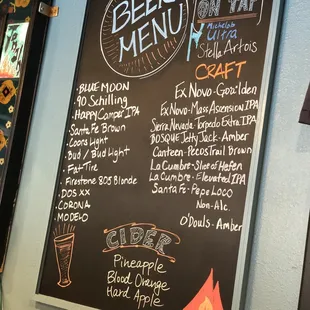 BEER
MENU
ON TAP
Michelob
Ultra
Stella Artois
• BLUE MOON
• 90 Schilling
• Happy Camper IPA
• Santa Fe Brown
• Coors Light
• Bud / Bud Light
• Fat Tire
• Firestone 805 Blonde
• DOS XX
• CORONA
• MODELO
CRAFT
Ex Novo - Goz'lden
Ex Novo - Mass Ascension IPA
Sierra Nevada Torpedo Extra IPA
BOSQUE Jetty Jack - Amber
Canteen - Pecos Trail Brown
La Cumbre - Slice of Hefen
La Cumbre - Elevated IPA
Santa Fe - Pepe Loco
Non-Alc.
O'Douls - Amber
CIDER
Pineapple
Blood Orange
Hard Apple